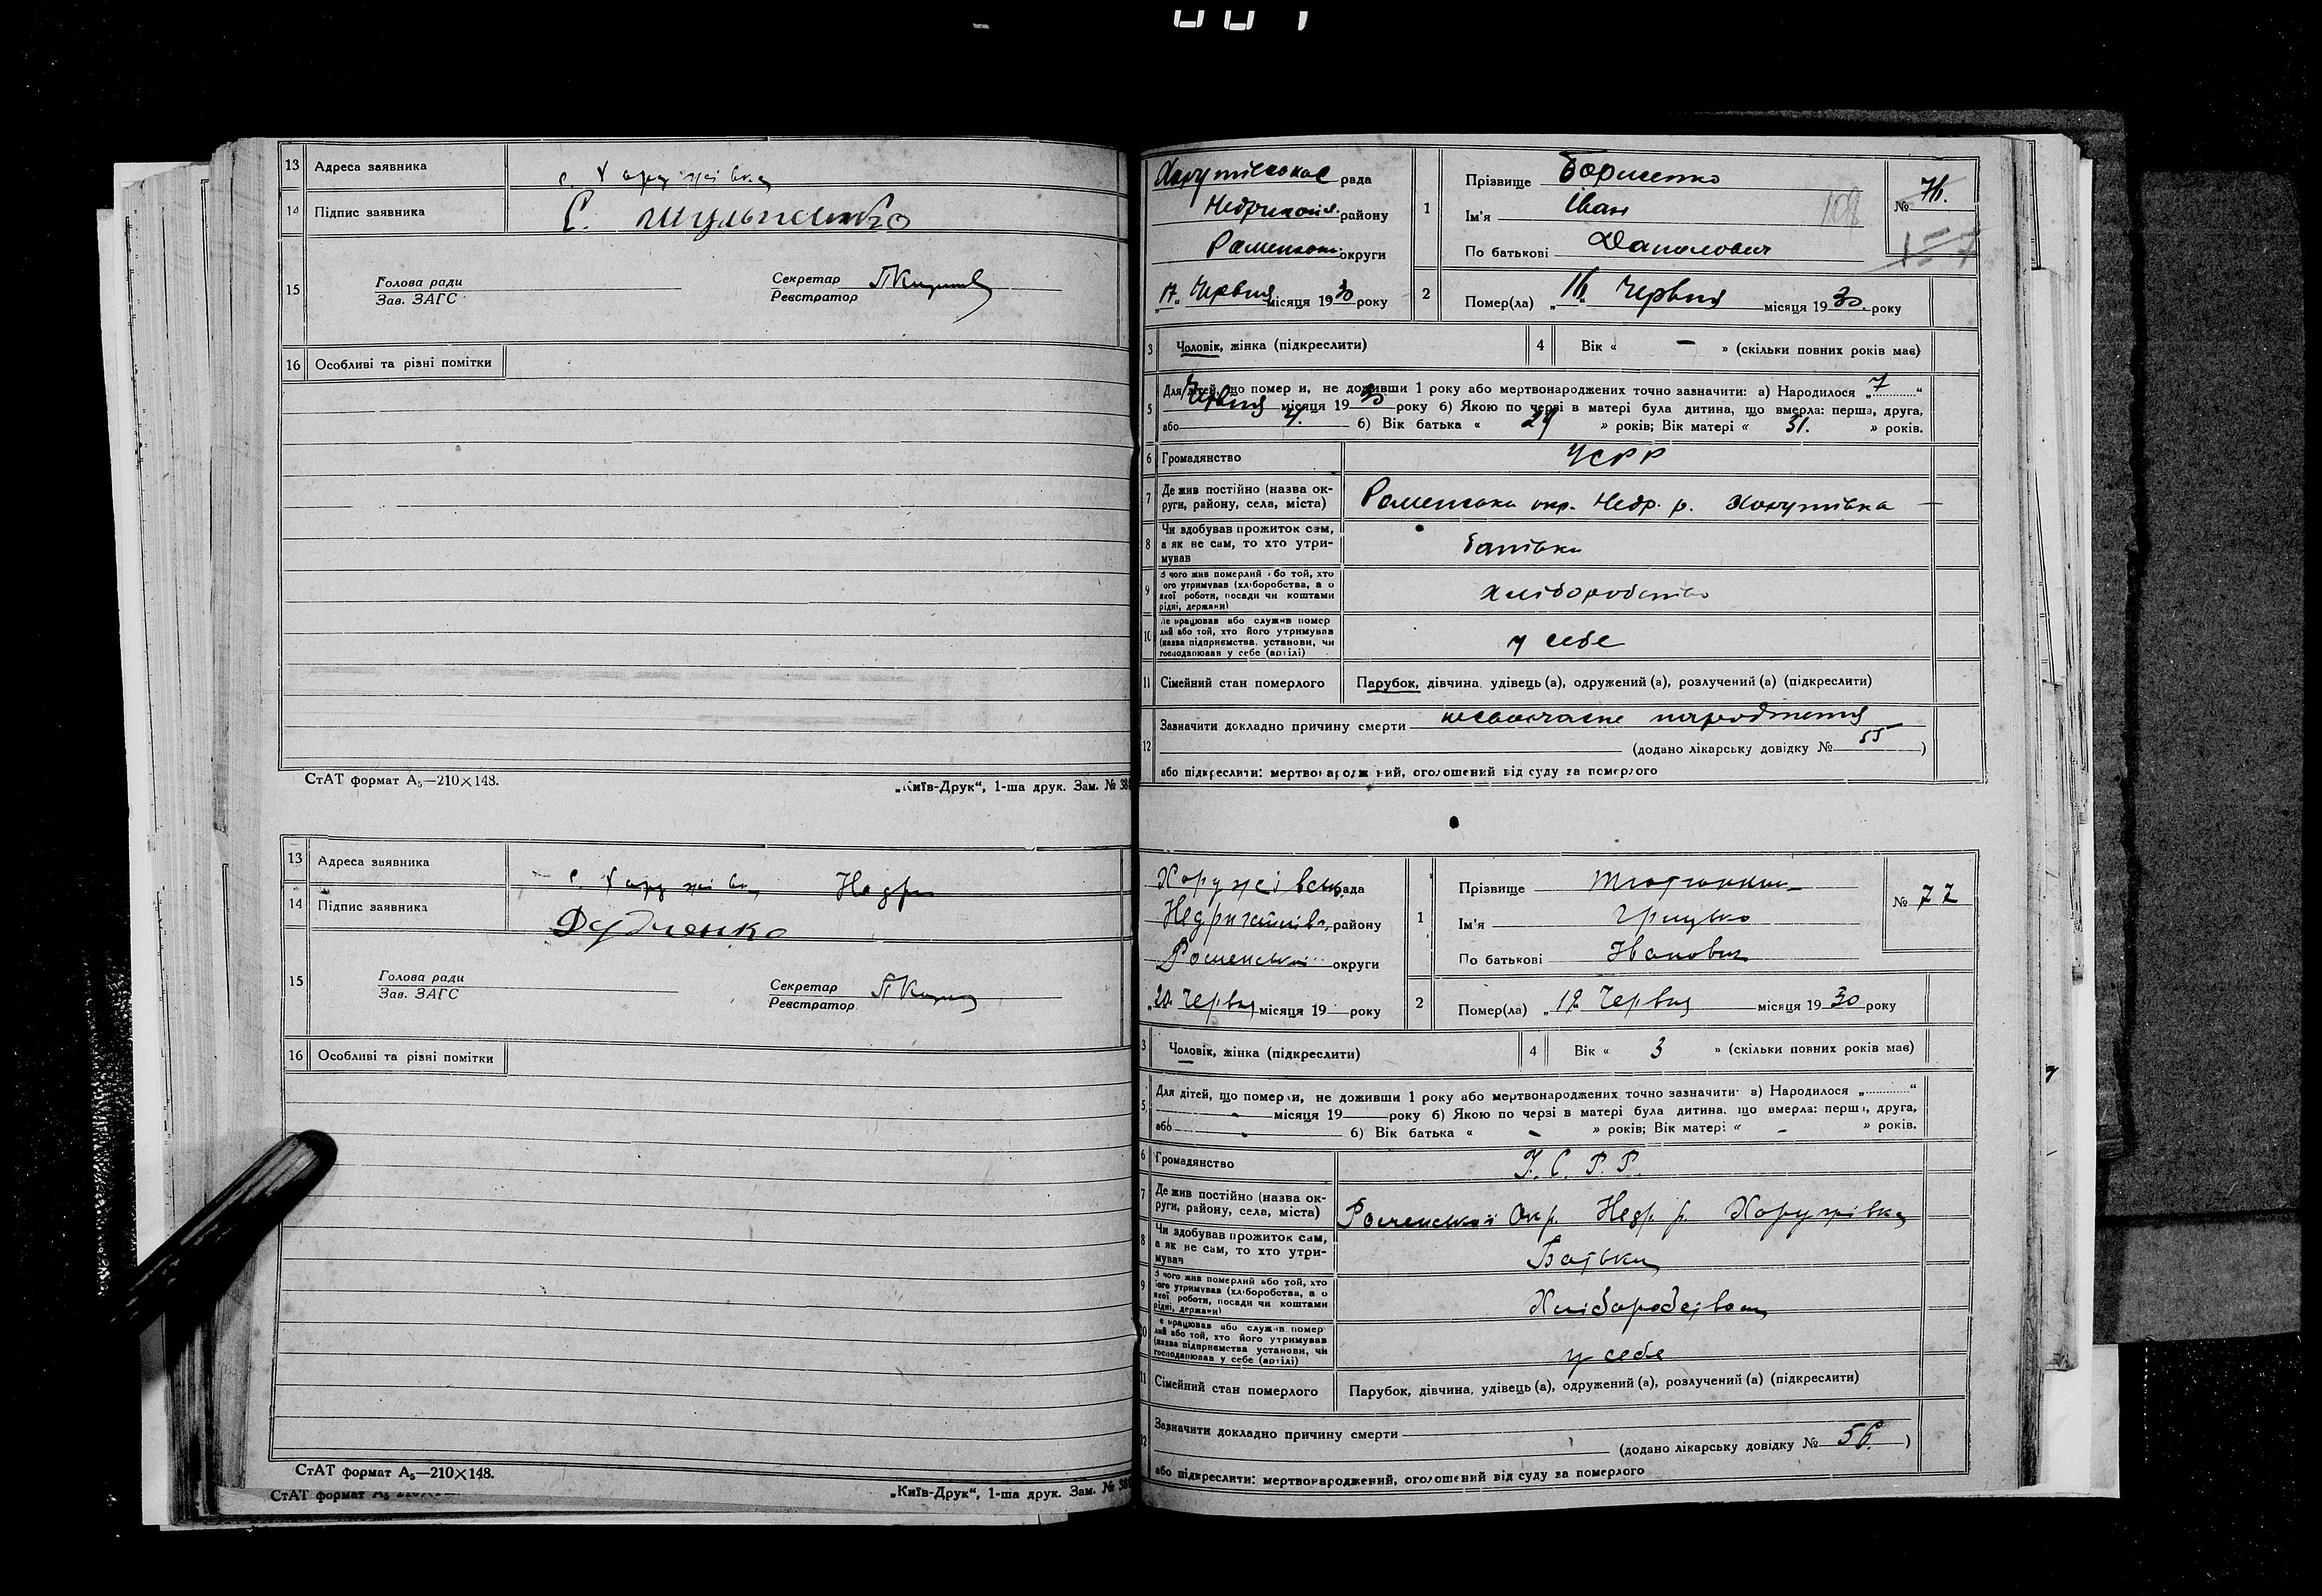 13 Адреса заявника
14 Підпис заявника
15 Голова ради
Зав. ЗАГС
Секретар
Реєстратор
16 Особливі та різні помітки
СтАТ формат А₅—210×148.
„Київ-Друк“, 1-ша друк. Зам. №
13 Адреса заявника
14 Підпис заявника
Дудченко
15 Голова ради
Зав. ЗАГС
Секретар
Реєстратор
16 Особливі та різні помітки
СтАТ формат А₅—210×148.
СтАТ формат
„Київ-Друк“, 1-ша друк. Зам. №
рада
району
округи
„17“ Червня місяця 1930 року
1 Прізвище Борисенко
Ім'я Іван
По батькові
108
№ 76.
2 Помер(ла) „16“ Червня місяця 1930 року
3 Чоловік, жінка (підкреслити)
4 Вік « — » (скільки повних років має)
5 Для дітей, що померли, не доживши 1 року або мертвонароджених точно зазначити: а) Народилося „7“
Червня місяця 1930 року б) Якою по черзі в матері була дитина, що вмерла: перша, друга,
або 4. б) Вік батька « 29 » років; Вік матері « 31. » років.
6 Громадянство УСРР
7 Де жив постійно (назва округи, району, села, міста) Роменська окр. Недр. р.
8 Чи здобував прожиток сам,
а як не сам, то хто утримував
батьки
9 З чого жив померлий або той, хто
його утримував (хліборобства, а о
якої роботи, посади чи коштами
рідні, держави)
хліборобство
10 Де працював або служив помер
лий або той, хто його утримував
(назва підприємства, установи, чи
господарював у себе (артілі)
у себе
11 Сімейний стан померлого Парубок, дівчина, удівець (а), одружений (а), розлучений (а) (підкреслити)
12 Зазначити докладно причину смерти несвоєчасне народження
(додано лікарську довідку № 55)
або підкреслити: мертвонароджений, оголошений від суду за померлого
Хоружівська рада
району
Роменської округи
„20“ Червня місяця 19 року
1 Прізвище
Ім'я Грицько
По батькові Іванович
№ 77
2 Помер(ла) „18 Червня місяця 1930 року
3 Чоловік, жінка (підкреслити)
4 Вік « 3 » (скільки повних років має)
5 Для дітей, що померли, не доживши 1 року або мертвонароджених точно зазначити: а) Народилося „ “
місяця 19 року б) Якою по черзі в матері була дитина, що вмерла: перша, друга,
або б) Вік батька « – » років; Вік матері « – » років.
6 Громадянство У. С. Р. Р.
7 Де жив постійно (назва округи, району, села, міста) Роменської Окр. Недр. р. Хоружівка
8 Чи здобував прожиток сам,
а як не сам, то хто утримував
Батьки
9 З чого жив померлий або той, хто
його утримував (хліборобства, а о
якої роботи, посади чи коштами
рідні, держави)
Хліборобством
10 Де працював або служив помер
лий або той, хто його утримував
(назва підприємства установи, чи
господарював у себе (артілі)
у себе
11 Сімейний стан померлого Парубок, дівчина, удівець (а), одружений (а), розлучений (а) (підкреслити)
12 Зазначити докладно причину смерти
(додано лікарську довідку № 56.)
або підкреслити: мертвонароджений, оголошений від суду за померлого